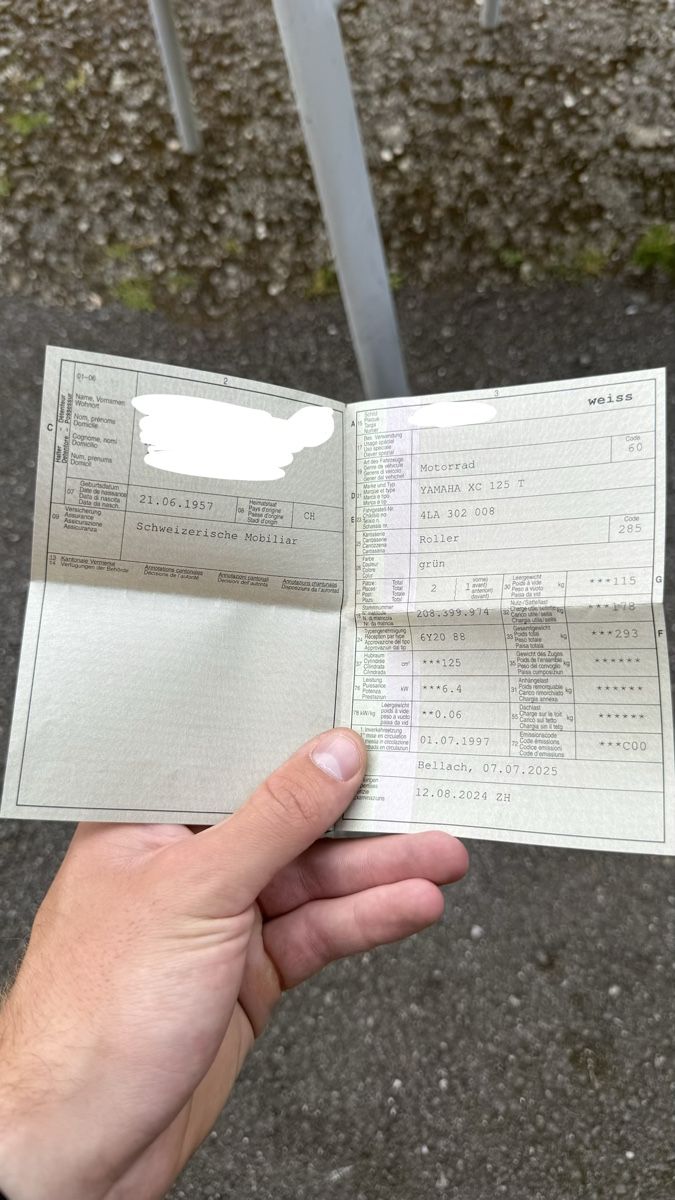 01-06
2
C
Halter
Détenteur
Detentore
Possessur
Name, Vornamen
Wohnort
Nom, prénoms
Domicile
Cognome, nomi
Domicilio
Num, prenums
Domicil
07
Geburtsdatum
Date de naissance
Data di nascita
Data da nasch.
21.06.1957
08
Heimatstaat
Pays d'origine
Paese d'origine
Stadi d'origin
CH
09
Versicherung
Assurance
Assicurazione
Assicuranza
Schweizerische Mobiliar
13
14
Kantonale Vermerke
Verfügungen der Behörde
Annotations cantonales
Décisions de l'autorité
Annotazioni cantonali
Decisioni dell'autorità
Annotaziuns chantunalas
Disposiziuns da l'autoritad
3
weiss
A
15
Schild
Plaque
Targa
Numer
17
Bes. Verwendung
Usage spécial
Uso speciale
Diever spezial
19
Art des Fahrzeugs
Genre de véhicule
Genere di veicolo
Gener dal vehichel
Motorrad
Code
60
D
21
Marke und Typ
Marque et type
Marca e tipo
Marca e tip
YAMAHA XC 125 T
E
23
Fahrgestell-Nr.
Châssis no
Telaio n.
Schassis nr.
4LA 302 008
25
Karosserie
Carrosserie
Carrozzeria
Carossaria
Roller
Code
285
26
Farbe
Couleur
Colore
Colur
grün
27
Plätze: Total
Places: Total
Posti: Totale
Plazs: Total
2
vorne)
avant)
anteriori)
davant)
30
Leergewicht
Poids à vide
Peso a vuoto
Paisa da vid
kg
***115
G
18
Stammnummer
N° matricule
N. di matricola
Nr. da matricla
208.399.974
32
Nutz-/Sattellast
Charge utile/sellette
Carico utile/sella
Chargia utila/sella
***178
24
Typengenehmigung
Réception par type
Approvazione del tipo
Approvaziun dal tip
6Y20 88
33
Gesamtgewicht
Poids total
Peso totale
Paisa totala
kg
***293
F
37
Hubraum
Cylindrée
Cilindrata
Cilindrada
cm³
***125
35
Gewicht des Zuges
Poids de l'ensemble
Peso del convoglio
Paisa cumposiziun
kg
******
76
Leistung
Puissance
Potenza
Prestaziun
kW
***6.4
31
Anhängelast
Poids remorquable
Carico rimorchiato
Chargia annexa
kg
******
78 kW/kg
Leergewicht
poids à vide
peso a vuoto
paisa da vid
**0.06
55
Dachlast
Charge sur le toit
Carico sul tetto
Chargia sin il tetg
kg
******
1. Inverkehrsetzung
01.07.1997
72
Emissionscode
Code émissions
Codice emissioni
Code d'emissiuns
***C00
Bellach, 07.07.2025
12.08.2024 ZH